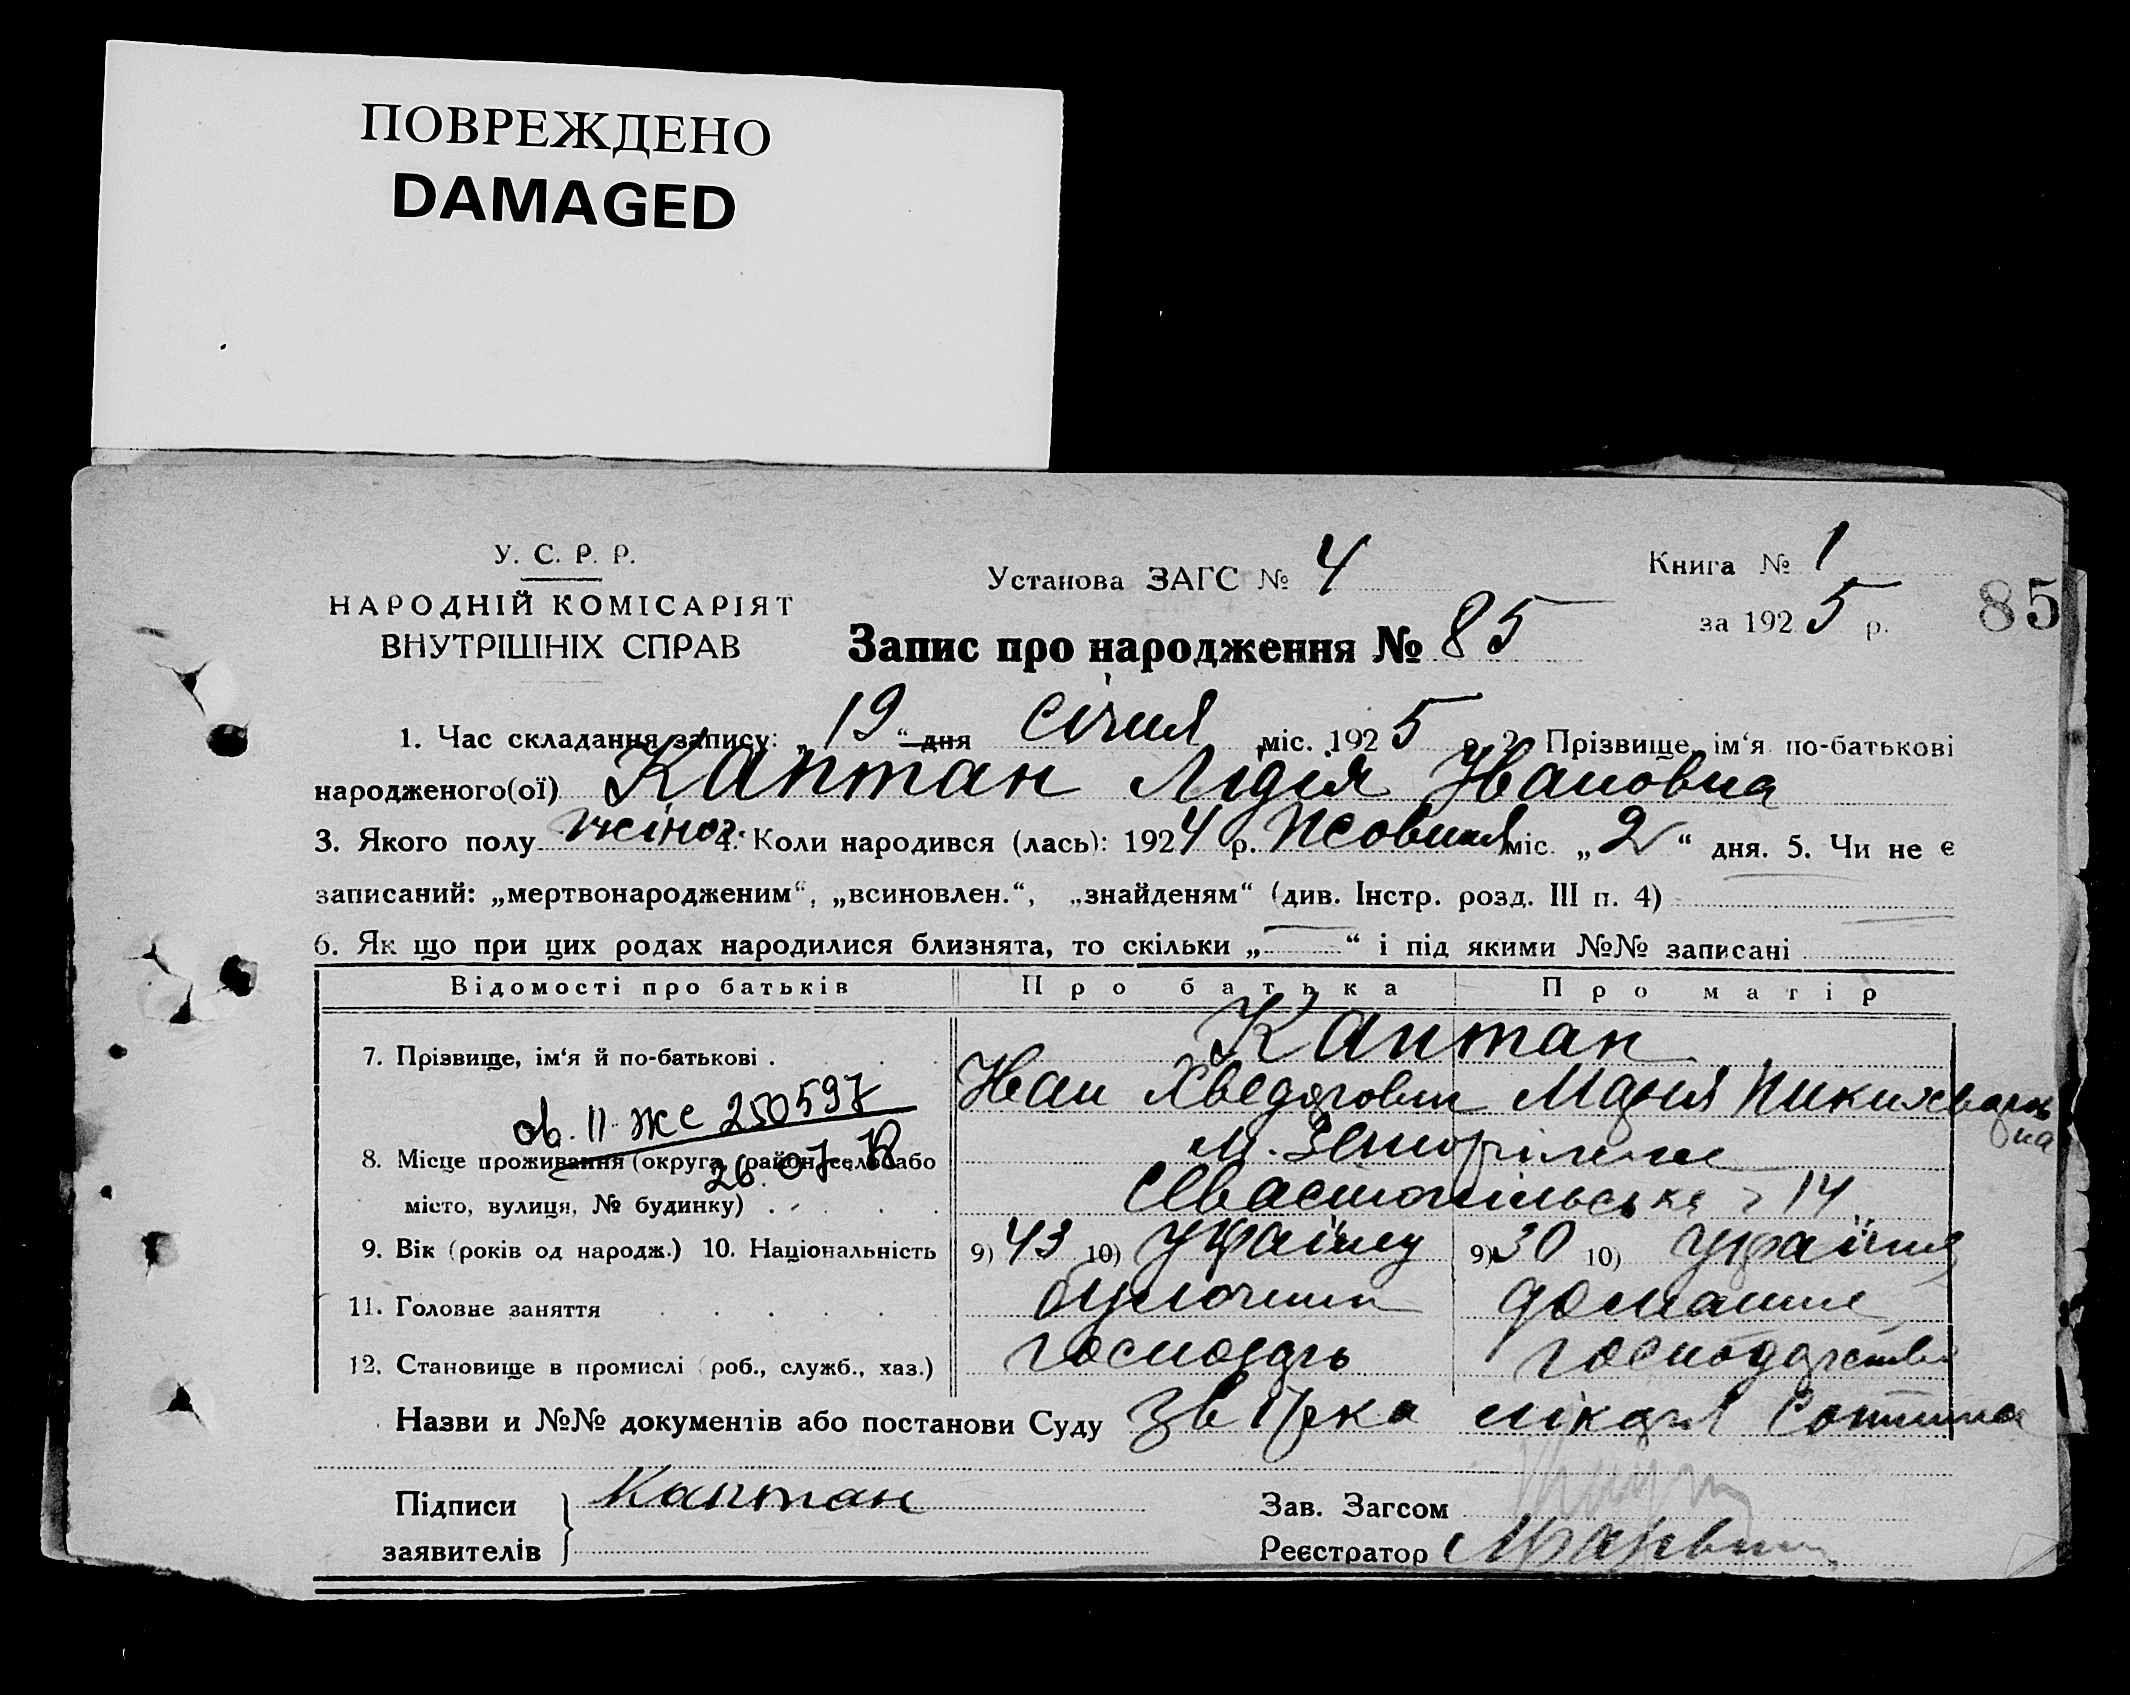 ПОВРЕЖДЕНО
DAMAGED
У. С. Р. Р.
НАРОДНІЙ КОМІСАРІЯТ
ВНУТРІШНІХ СПРАВ
Установа ЗАГС № 4
Книга № 1
за 1925 р.
85
Запис про народження № 85
1. Час складання запису: „19“ дня січня міс. 1925 р. 2. Прізвище, ім‘я по-батькові
народженого(ої) Каптан Лідія Івановна
3. Якого полу жіноч. 4. Коли народився (лась): 1924 р. Жовтня міс. „2“ дня. 5. Чи не є
записаний: „мертвонародженим“, „всиновлен.“, „знайденям“ (див. Інстр. розд. III п. 4)
6. Як що при цих родах народилися близнята, то скільки „—“ і під якими №№ записані
Відомості про батьків Про батька Про матір
7. Прізвище, ім‘я й по-батькові . Каптан
Іван Хведорович Марія Никихваровна
ов. II-ЖС 250597
8. Місце проживання (округа, район, село або м.
26.07.
місто, вулиця, № будинку) . Севастопільська 14
9. Вік (років од народж.) 10. Національність 9) 43 10) Україн 9) 30 10) Україн
11. Головне заняття булочник домашнє
12. Становище в промислі (роб., служб., хаз.) господарь господарство
Назви и №№ документів або постанови Суду Звірка лікаря
Підписи
заявителів
Каптан
Зав. Загсом
Реєстратор